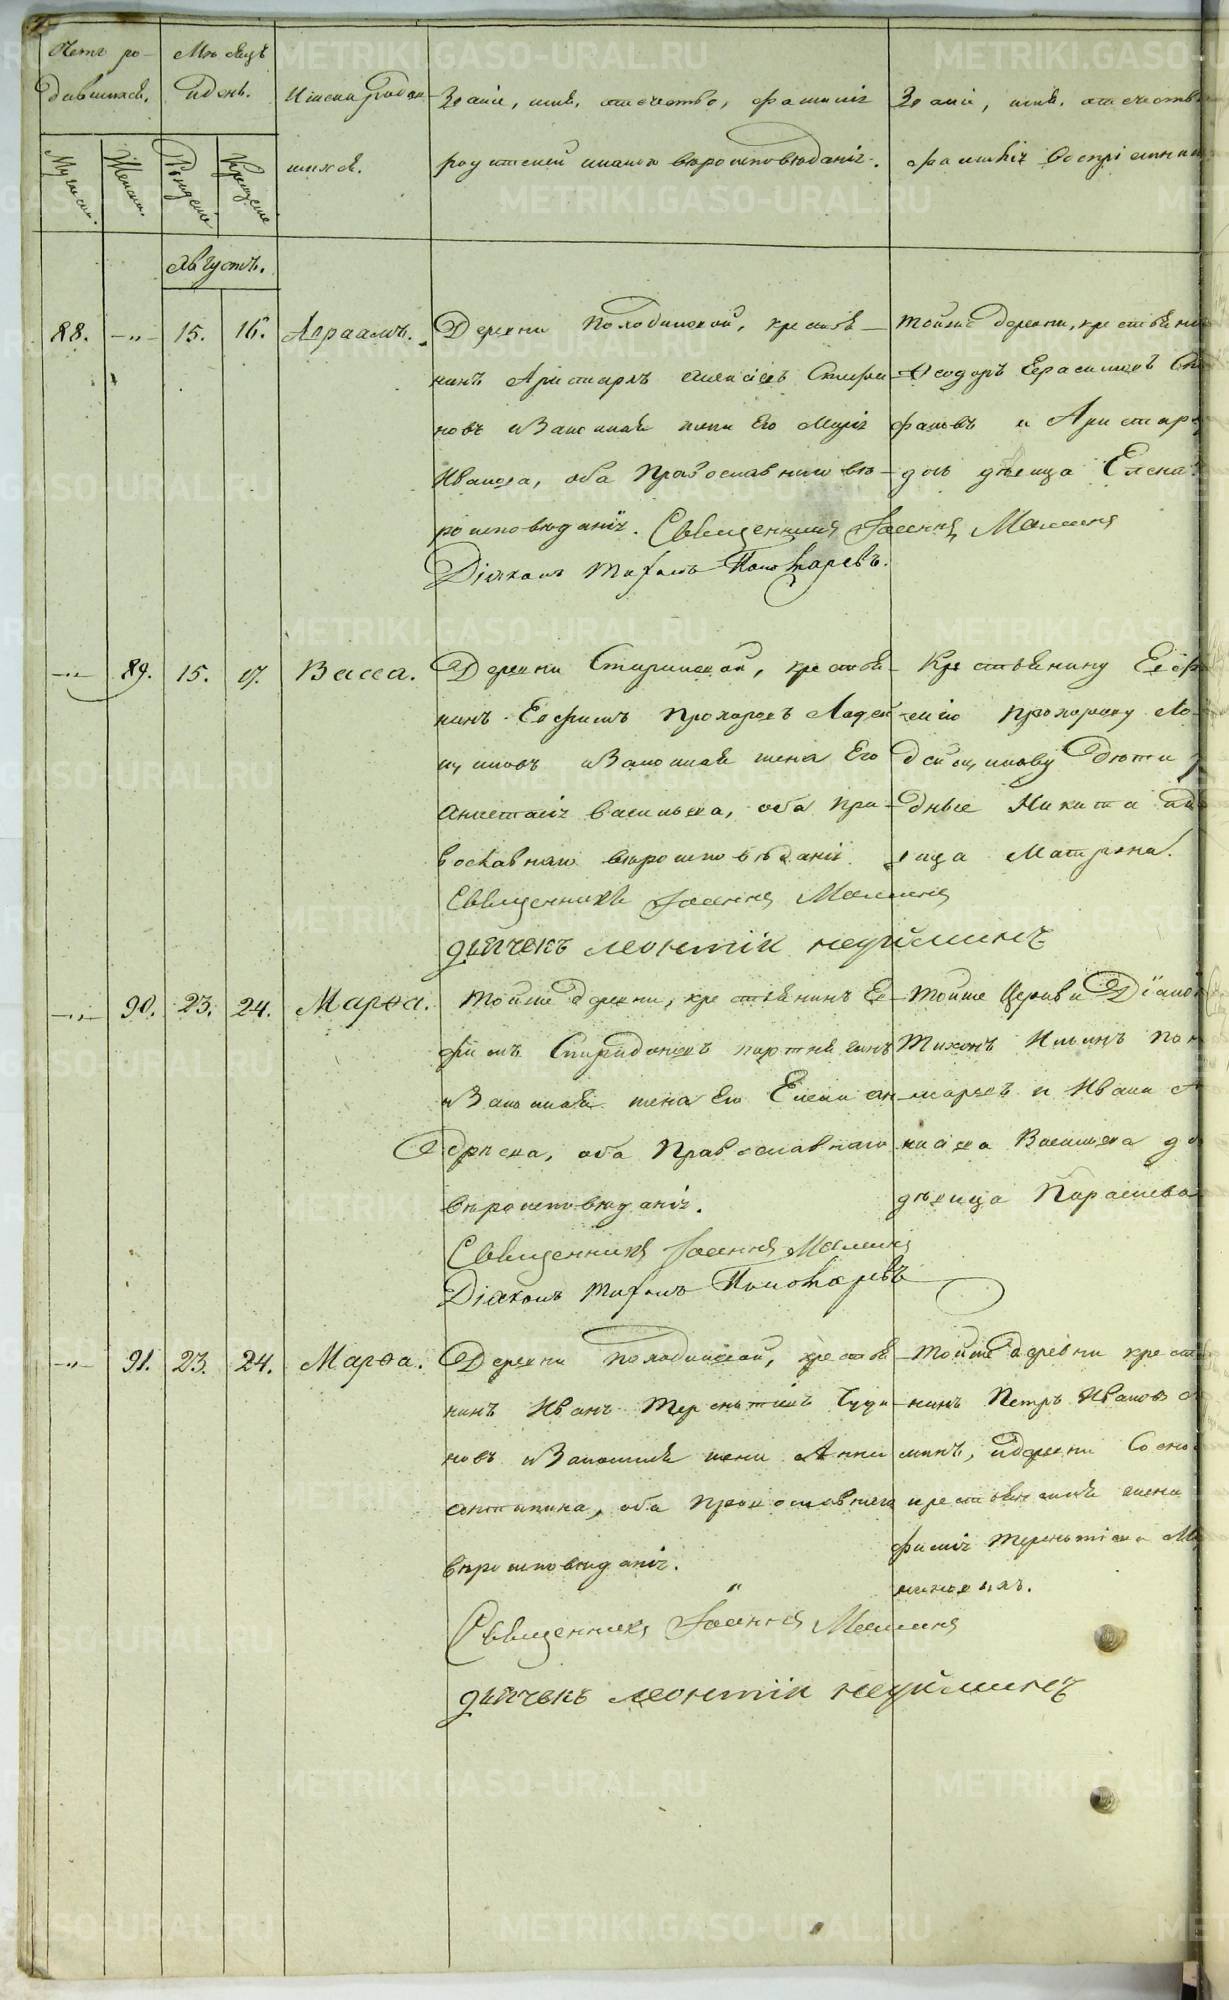 Счетъ ро-
дившихся.
Мѣсяцъ
и день.
Имена родив-
шихся.
Званіе, имя, отчество, фамилія
родителей и какого вѣроисповѣданія.
Званіе, имя, отчество
фамилія воспріемник
Мужска.
Женска.
Рожденіе
Крещеніе
Августъ.
88. -"- 15. 16. Авраамъ.
Деревни Колодинской, крестья-
нинъ Аристархъ Стефа-
новъ и Законная жена Его Марія
Иванова, оба Православнаго вѣ-
роисповѣданія. Священникъ Іоаннъ Маминъ
Діаконъ Тихонъ Пономаревъ.
Тойже деревни, крестьянин
Ѳеодоръ Герасимовъ Сте
фановъ и Аристар
дочь дѣвица Елена.
-"- 89. 15. 17. Васса.
Деревни Старинской, крестья-
нинъ Евфимъ Прохоровъ Ладей-
щиковъ и Законная жена Его
Анастасія Васильева, оба Пра-
вославнаго вѣроисповѣданія.
Священникъ Іоаннъ Маминъ
дьячекъ леонтіи неуйминъ
Крестьянину
Прохорову Ла-
дейщикову дѣти
дные Никита и дѣ
вица Матрена.
-"- 90. 23. 24. Марѳа.
Тойже деревни, крестьянинъ Ев-
фимъ Спиридоновъ
и Законная жена Его Елена Ан-
дреева, оба Православнаго
вѣроисповѣданія.
Священникъ Іоаннъ Маминъ
Діаконъ Тихонъ Пономаревъ
Тойже Церкви Діакон
Тихонъ Ильинъ Поно
маревъ и Ивана
дѣвица Параскева
-"- 91. 23. 24. Марѳа.
Деревни Колодинской, крестья-
нинъ Иванъ Терентіевъ
новъ и Законная жена Анна
Антипина, оба Православнаго
вѣроисповѣданія.
Священникъ Іоаннъ Маминъ
дьячекъ леонтіи неуйминъ
Тойже деревни крест
нинъ Петръ Ивановъ
минъ, и деревни Сосно
крестьянская жена
фимія Терентіева М